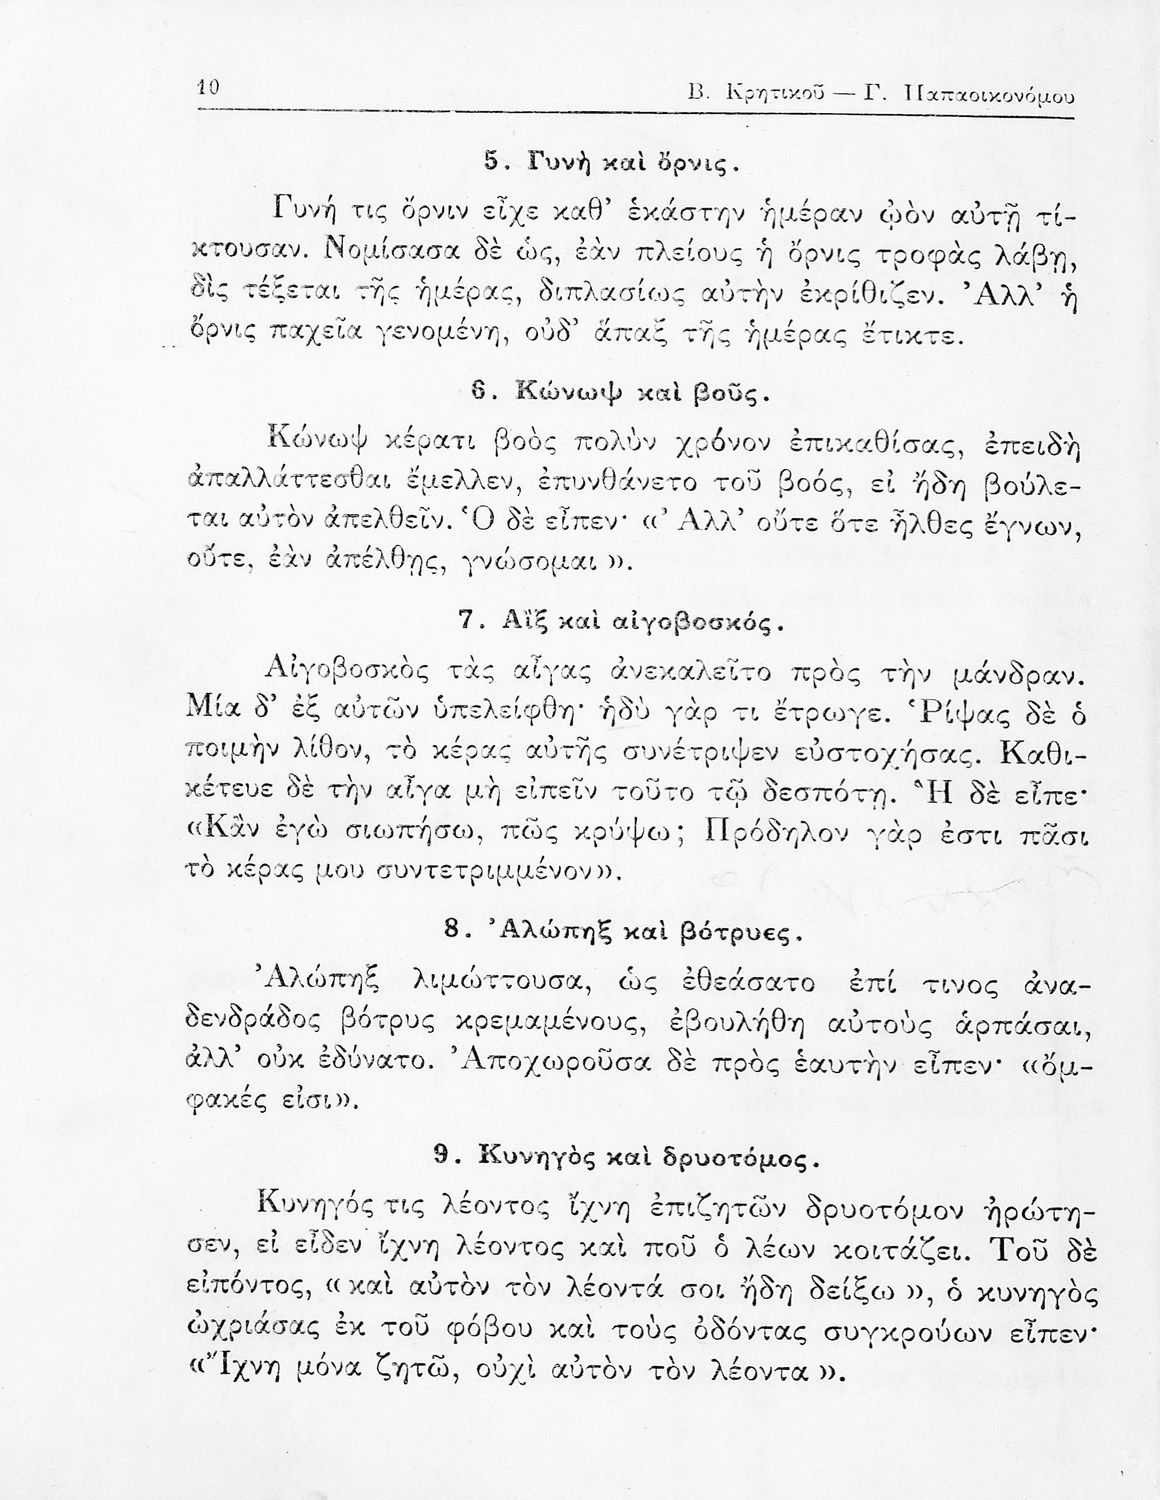 10
Β. Κρητικοῦ — Γ. Παπαοικονόμου
5. Γυνὴ καὶ ὄρνις.
Γυνή τις ὄρνιν εἶχε καθ’ ἑκάστην ἡμέραν ᾠὸν αὐτῇ τί-
κτουσαν. Νομίσασα δὲ ὡς, ἐὰν πλείους ἡ ὄρνις τροφὰς λάβῃ,
δὶς τέξεται τῆς ἡμέρας, διπλασίως αὐτὴν ἐκρίθιζεν. ’Αλλ’ ἡ
ὄρνις παχεῖα γενομένη, οὐδ’ ἅπαξ τῆς ἡμέρας ἔτικτε.
6. Κώνωψ καὶ βοῦς.
Κώνωψ κέρατι βοὸς πολὺν χρόνον ἐπικαθίσας, ἐπειδὴ
ἀπαλλάττεσθαι ἔμελλεν, ἐπυνθάνετο τοῦ βοός, εἰ ἤδη βούλε-
ται αὐτὸν ἀπελθεῖν. Ὁ δὲ εἶπεν· «’Αλλ’ οὔτε ὅτε ἦλθες ἔγνων,
οὔτε, ἐὰν ἀπέλθῃς, γνώσομαι ».
7. Αἲξ καὶ αἰγοβοσκός.
Αἰγοβοσκὸς τὰς αἶγας ἀνεκαλεῖτο πρὸς τὴν μάνδραν.
Μία δ’ ἐξ αὐτῶν ὑπελείφθη· ἡδὺ γὰρ τι ἔτρωγε. Ῥίψας δὲ ὁ
ποιμὴν λίθον, τὸ κέρας αὐτῆς συνέτριψεν εὐστοχήσας. Καθι-
κέτευε δὲ τὴν αἶγα μὴ εἰπεῖν τοῦτο τῷ δεσπότῃ. Ἣ δὲ εἶπε·
«Κἂν ἐγὼ σιωπήσω, πῶς κρύψω; Πρόδηλον γὰρ ἐστι πᾶσι
τὸ κέρας μου συντετριμμένον».
8. ’Αλώπηξ καὶ βότρυες.
’Αλώπηξ λιμώττουσα, ὡς ἐθεάσατο ἐπί τινος ἀνα-
δενδράδος βότρυς κρεμαμένους, ἐβουλήθη αὐτοὺς ἁρπάσαι,
ἀλλ’ οὐκ ἐδύνατο. ’Αποχωροῦσα δὲ πρὸς ἑαυτὴν εἶπεν· «ὄμ-
φακές εἰσι».
9. Κυνηγὸς καὶ δρυοτόμος.
Κυνηγός τις λέοντος ἴχνη ἐπιζητῶν δρυοτόμον ἠρώτη-
σεν, εἰ εἶδεν ἴχνη λέοντος καὶ ποῦ ὁ λέων κοιτάζει. Τοῦ δὲ
εἰπόντος, « καὶ αὐτὸν τὸν λέοντά σοι ἤδη δείξω », ὁ κυνηγὸς
ὠχριάσας ἐκ τοῦ φόβου καὶ τοὺς ὀδόντας συγκρούων εἶπεν·
«Ἴχνη μόνα ζητῶ, οὐχὶ αὐτὸν τὸν λέοντα ».